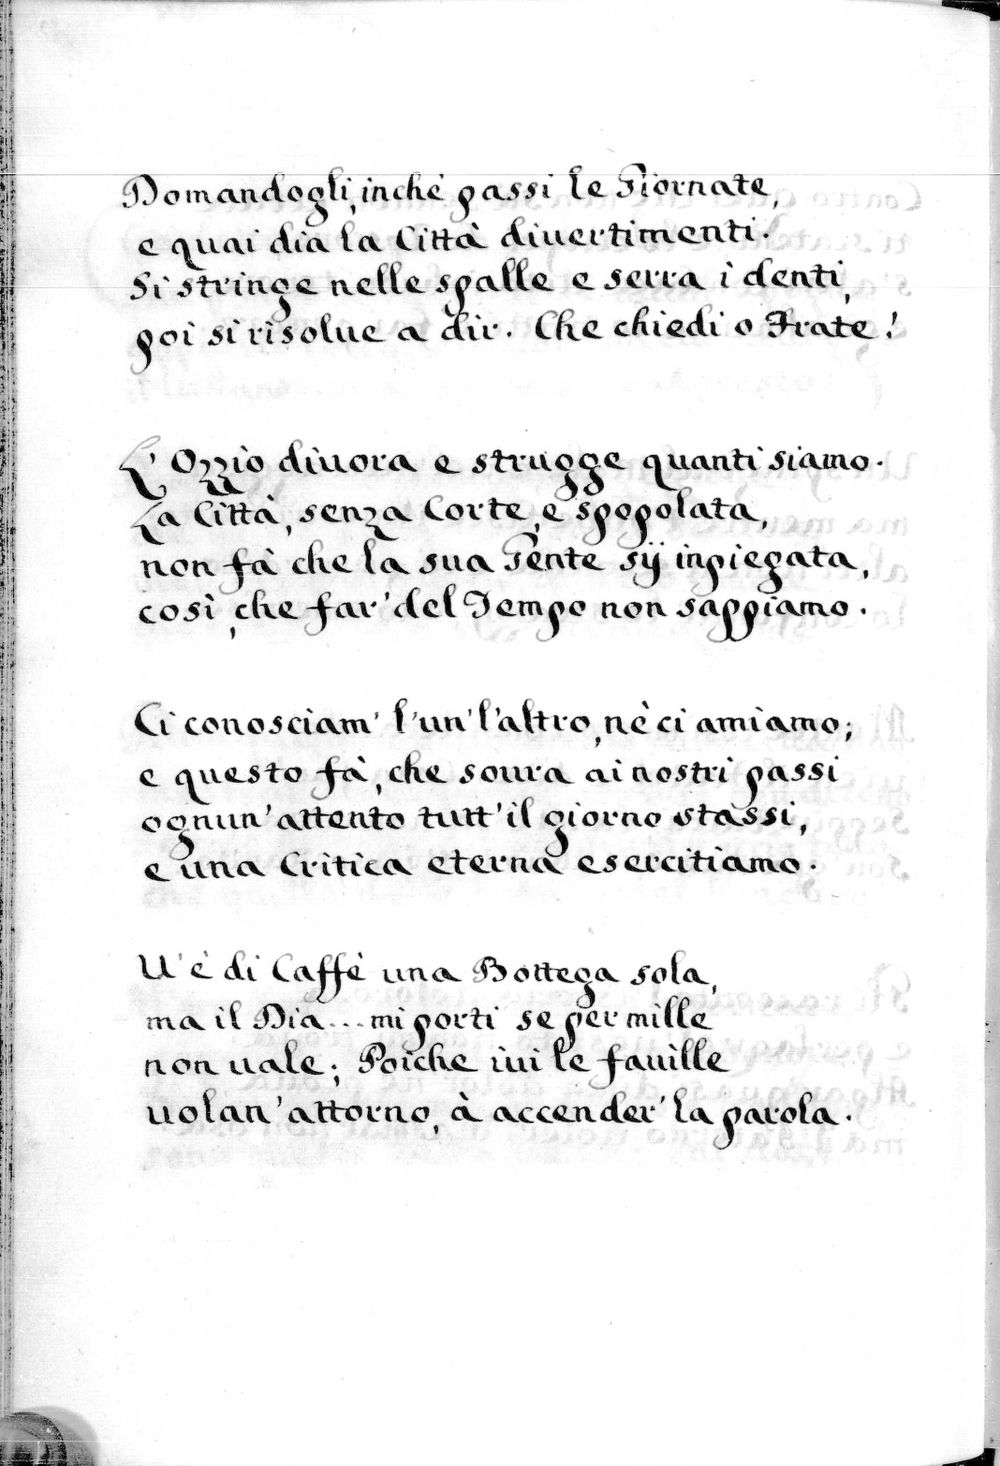 Domandogli, inchè passi le Giornate,
e quai dia la Città divertimenti.
Si stringe nelle spalle e serra i denti,
poi si risolue a dir. Che chiedi o Frate!
L' Ozzio diuora e strugge quanti siamo.
La Città, senza Corte, e spopolata,
non fà che la sua Gente sÿ inpiegata,
così, che far' del Tempo non sappiamo.
Ci conosciam' l'un' l'altro, nè ci amiamo;
e questo fà, che soura ai nostri passi
ognun' attento tutt' il giorno stassi,
e una Critica eterna esercitiamo.
U' è di Caffè una Bottega sola,
ma il Dia... mi porti se per mille
non uale; Poiche iui le fauille
uolan' attorno, à accender' la parola.